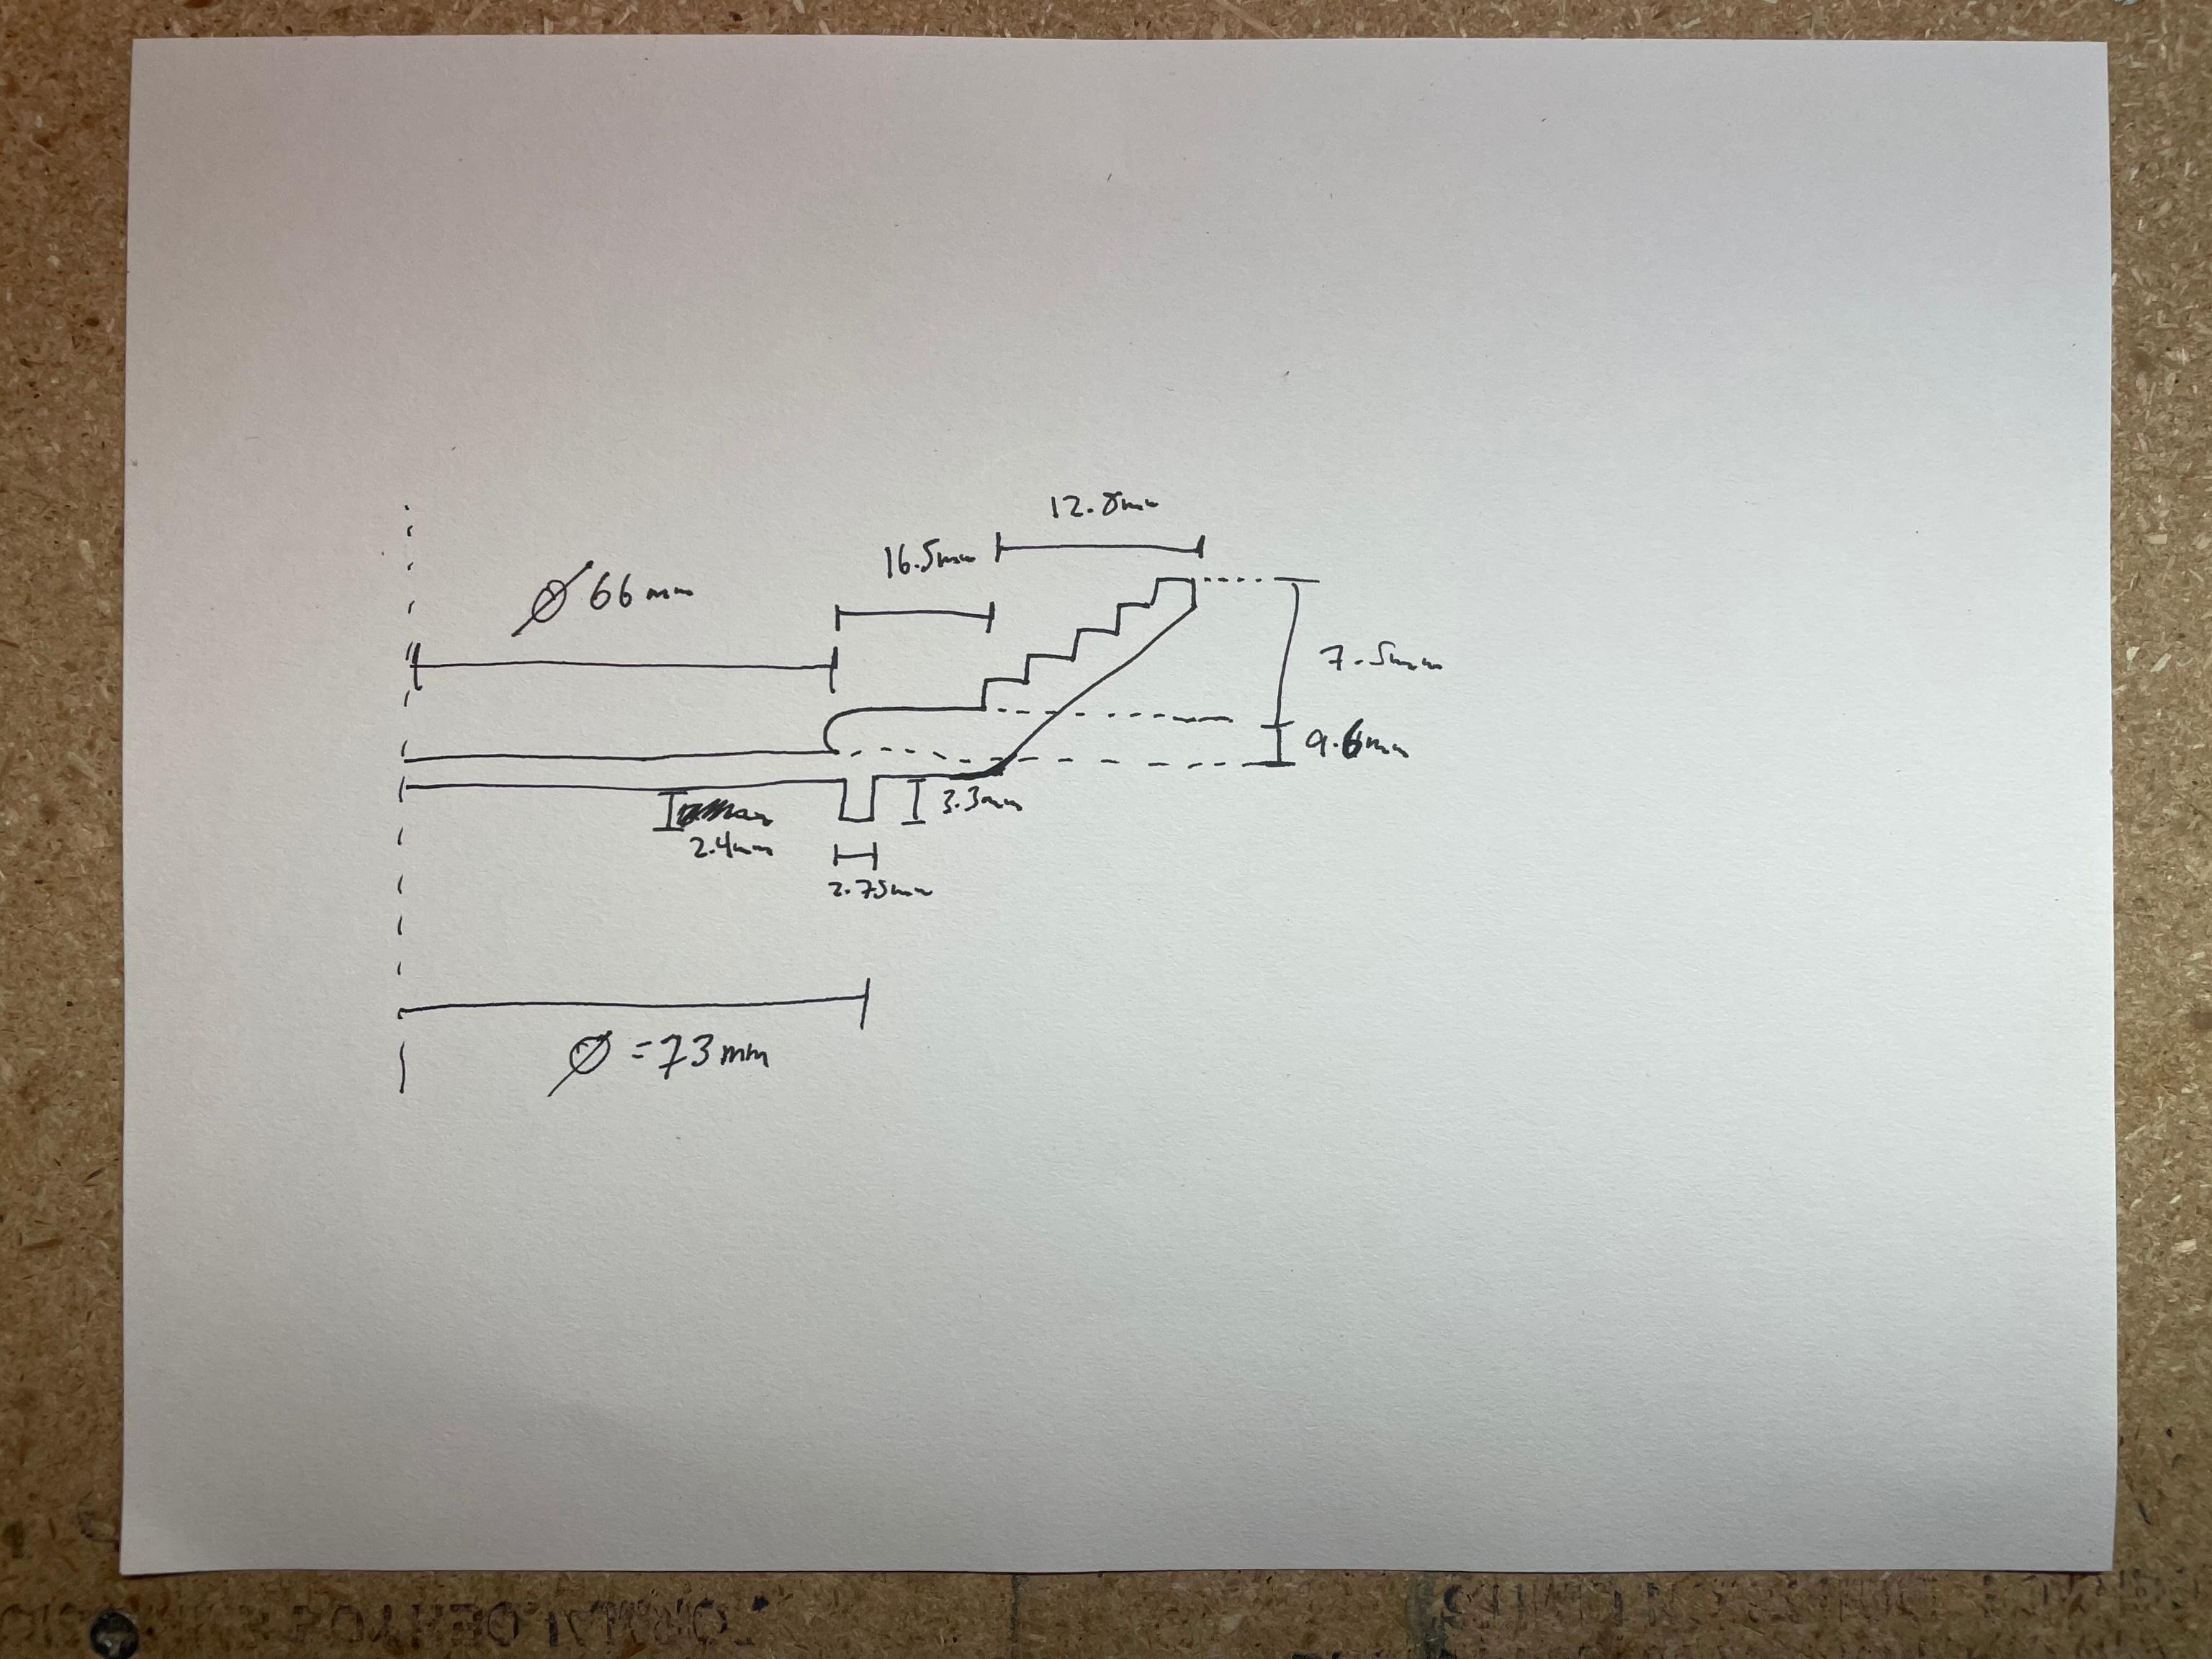 12.8mm
16.5mm
Ø 66mm
7.5mm
9.6mm
3.3mm
2.4mm
2.75mm
Ø = 73mm